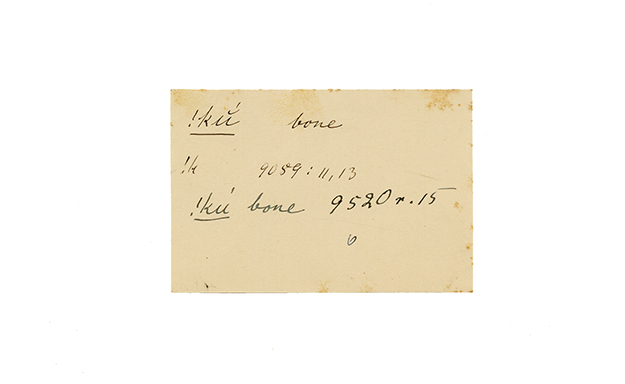 !kṹ bone
!k 9059:11,13
!kú bone 9520 r. 15
6